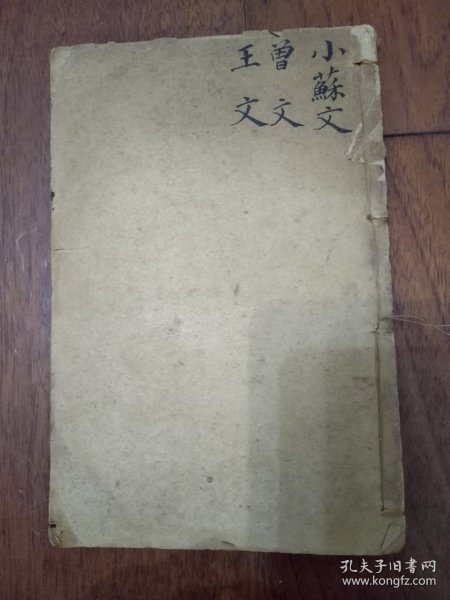 小蘇文
曽文
王文
孔夫子旧书网
www.kongfz.com